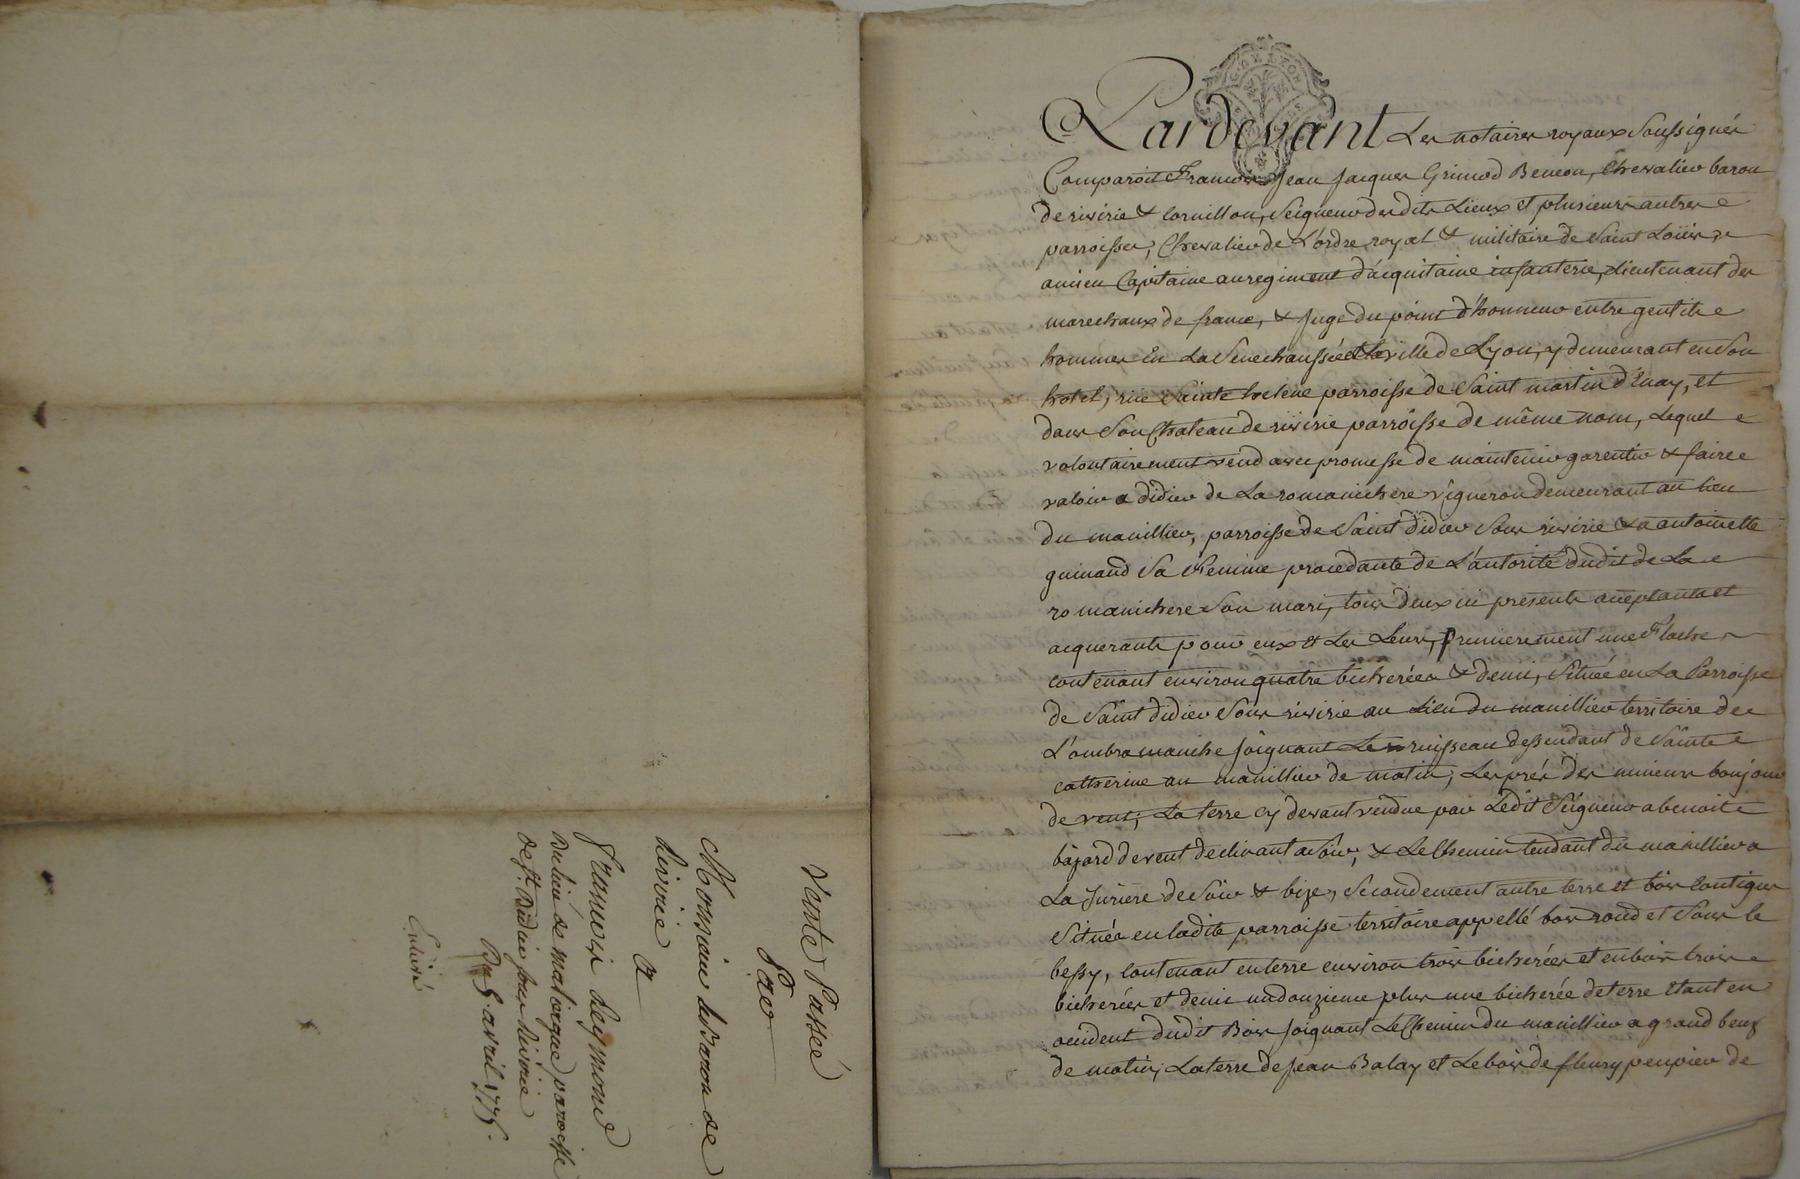 Vente Passée
Par
Monsieur le Baron de
Rivirie
a
François Leymond
du lieu de
paroisse
de St. Didier sous Rivirie
Du 5. avril 1775.
Pardevant Les notaires royaux Soussignés
Comparoit François Jean Jacques Grimod Beneon, Chevalier baron
de rivirie & Cornillon, Seigneur desdits Lieux et plusieurs autres
parroisses, Chevalier de L'ordre royal & militaire de Saint Loüis,
ancien Capitaine au regiment d'acquitaine infanterie, Lieutenant des
marechaux de france, & Juge du point d'honneur entre gentils
hommes En La Senechaussée et la ville de Lyon, y demeurant en Son
hotel, rüe Sainte helene parroisse de Saint martin d'Enay, et
dans Son Chateau de rivirie parroisse de même nom, Lequel
volontairement vend avec promesse de maintenir garentir & faire
valoir a didier de La romanichere vigneron demeurant au lieu
du manillier, parroisse de Saint didier Sous rivirie & a antoinette
guinand Sa femme procedante de L'autorité dudit de La
romanichere Son mari, tous deux ici presents acceptants et
acquerants pour eux et Les Leurs, premierement une
contenant environ quatre bicherées & demi, Située en La Parroisse
de Saint didier Sous rivirie au Lieu du manillier territoire de
L'ombra manche joignant Le ruisseau dessendant de Sainte
catherine au manillier de matin; Les prés des mineurs boujour
de vent; La terre cy devant vendue par Ledit Seigneur a benoit
bajard de vent declinant a Soir, & Le Chemin tendant du manillier a
La de Soir & bize, Secondement autre terre et bois Contigus
Située en ladite parroisse territoire appellé bois rond et Sous le
bessy, Contenant en terre environ trois bicherées et en bois trois
bicherées et demie un douzieme plus une bicherée de terre Etant en
occident dudit Bois joignant Le Chemin du manillier a grand beuf
de matin; La terre de Jean Balay et Le bois de fleury peupier de